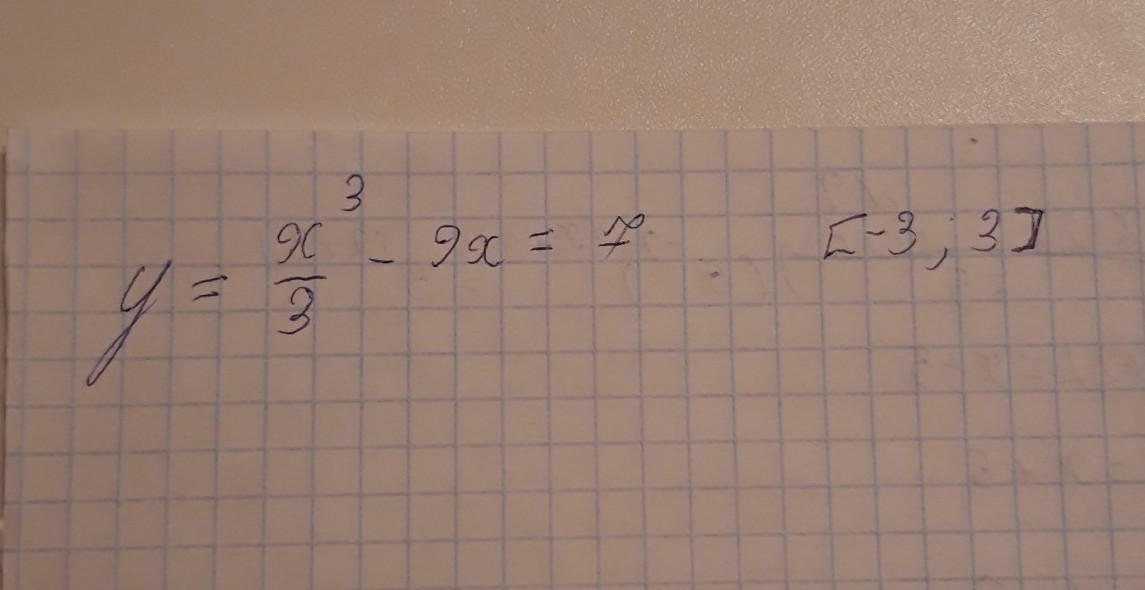 y = x³/3 - 9x = 7 [-3; 3]